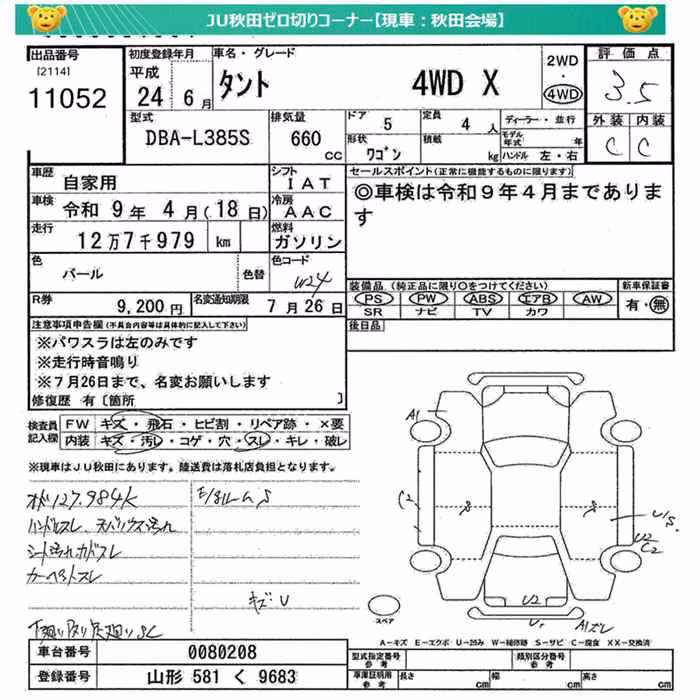 JU秋田ゼロ切りコーナー【現車：秋田会場】
出品番号
[2114]
11052
初度登録年月
平成
24年6月
車名・グレード
タント 4WD X
2WD
・
4WD
評価点
3.5
外装 内装
C C
型式
DBA-L385S
排気量
660
CC
ドア
5
定員
4人
形状
ワゴン
積載
kg
ディーラー・並行
モデル年式 年
ハンドル 左・右
車歴
自家用
シフト
IAT
車検
令和 9年 4月(18日)
冷房
AAC
走行
12万7千979 km
燃料
ガソリン
色
パール
色替
色コード
W24
R券
9,200円
名変通知期限
7月26日
セールスポイント(正常に機能するものに限ります)
◎車検は令和9年4月まであります
装備品(純正品に限り○をつけてください)
PS PW ABS エアB AW
SR ナビ TV カワ
新車保証書
有・無
後日品
注意事項申告欄(不具合内容等は具体的に記入して下さい)
※パワスラは左のみです
※走行時音鳴り
※7月26日まで、名変お願いします
修復歴 有〔箇所 〕
検査員記入欄
FW キズ・飛石・ヒビ割・リペア跡・×要
内装 キズ・汚レ・コゲ・穴・スレ・キレ・破レ
※現車はJU秋田にあります。陸送費は落札店負担となります。
メ 127.984K
ハンドルスレ
カーペットスレ
キズ・U
A1
C2
U1S
U2
C2
U2
A1ズレ
スペア
A－キズ E－エクボ U－凹み W－補修跡 S－サビ C－腐食 XX－交換済
車台番号
0080208
登録番号
山形 581 く 9683
型式指定番号
参考
類別区分番号
参考
車庫証明用
参考
長さ cm
幅 cm
高さ cm